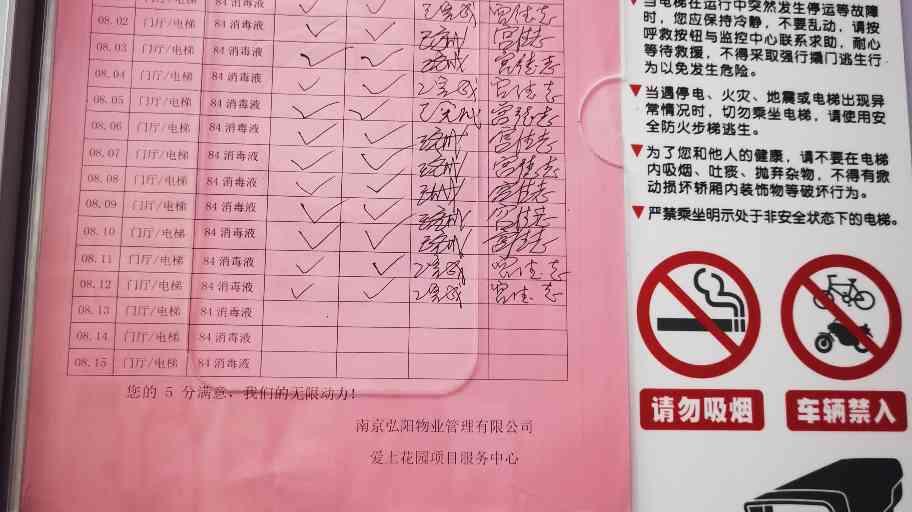 08.02 门厅/电梯 84消毒液 ✓ ✓ 宫佳志
08.03 门厅/电梯 84消毒液 ✓ ✓ 宫佳志
08.04 门厅/电梯 84消毒液 ✓ ✓ 宫佳志
08.05 门厅/电梯 84消毒液 ✓ ✓ 宫佳志
08.06 门厅/电梯 84消毒液 ✓ ✓ 宫佳志
08.07 门厅/电梯 84消毒液 ✓ ✓ 宫佳志
08.08 门厅/电梯 84消毒液 ✓ ✓ 宫佳志
08.09 门厅/电梯 84消毒液 ✓ ✓ 宫佳志
08.10 门厅/电梯 84消毒液 ✓ ✓ 宫佳志
08.11 门厅/电梯 84消毒液 ✓ ✓ 宫佳志
08.12 门厅/电梯 84消毒液 ✓ ✓ 宫佳志
08.13 门厅/电梯 84消毒液
08.14 门厅/电梯 84消毒液
08.15 门厅/电梯 84消毒液
您的 5 分满意、我们的无限动力!
南京弘阳物业管理有限公司
爱上花园项目服务中心
当电梯在运行中突然发生停运等故障
时，您应保持冷静，不要乱动，请按
呼救按钮与监控中心联系求助，耐心
等待救援，不得采取强行撬门逃生行
为以免发生危险。
当遇停电、火灾、地震或电梯出现异
常情况时，切勿乘坐电梯，请使用安
全防火步梯逃生。
为了您和他人的健康，请不要在电梯
内吸烟、吐痰、抛弃杂物，不得有掀
动损坏轿厢内装饰物等破坏行为。
严禁乘坐明示处于非安全状态下的电梯。
请勿吸烟
车辆禁入